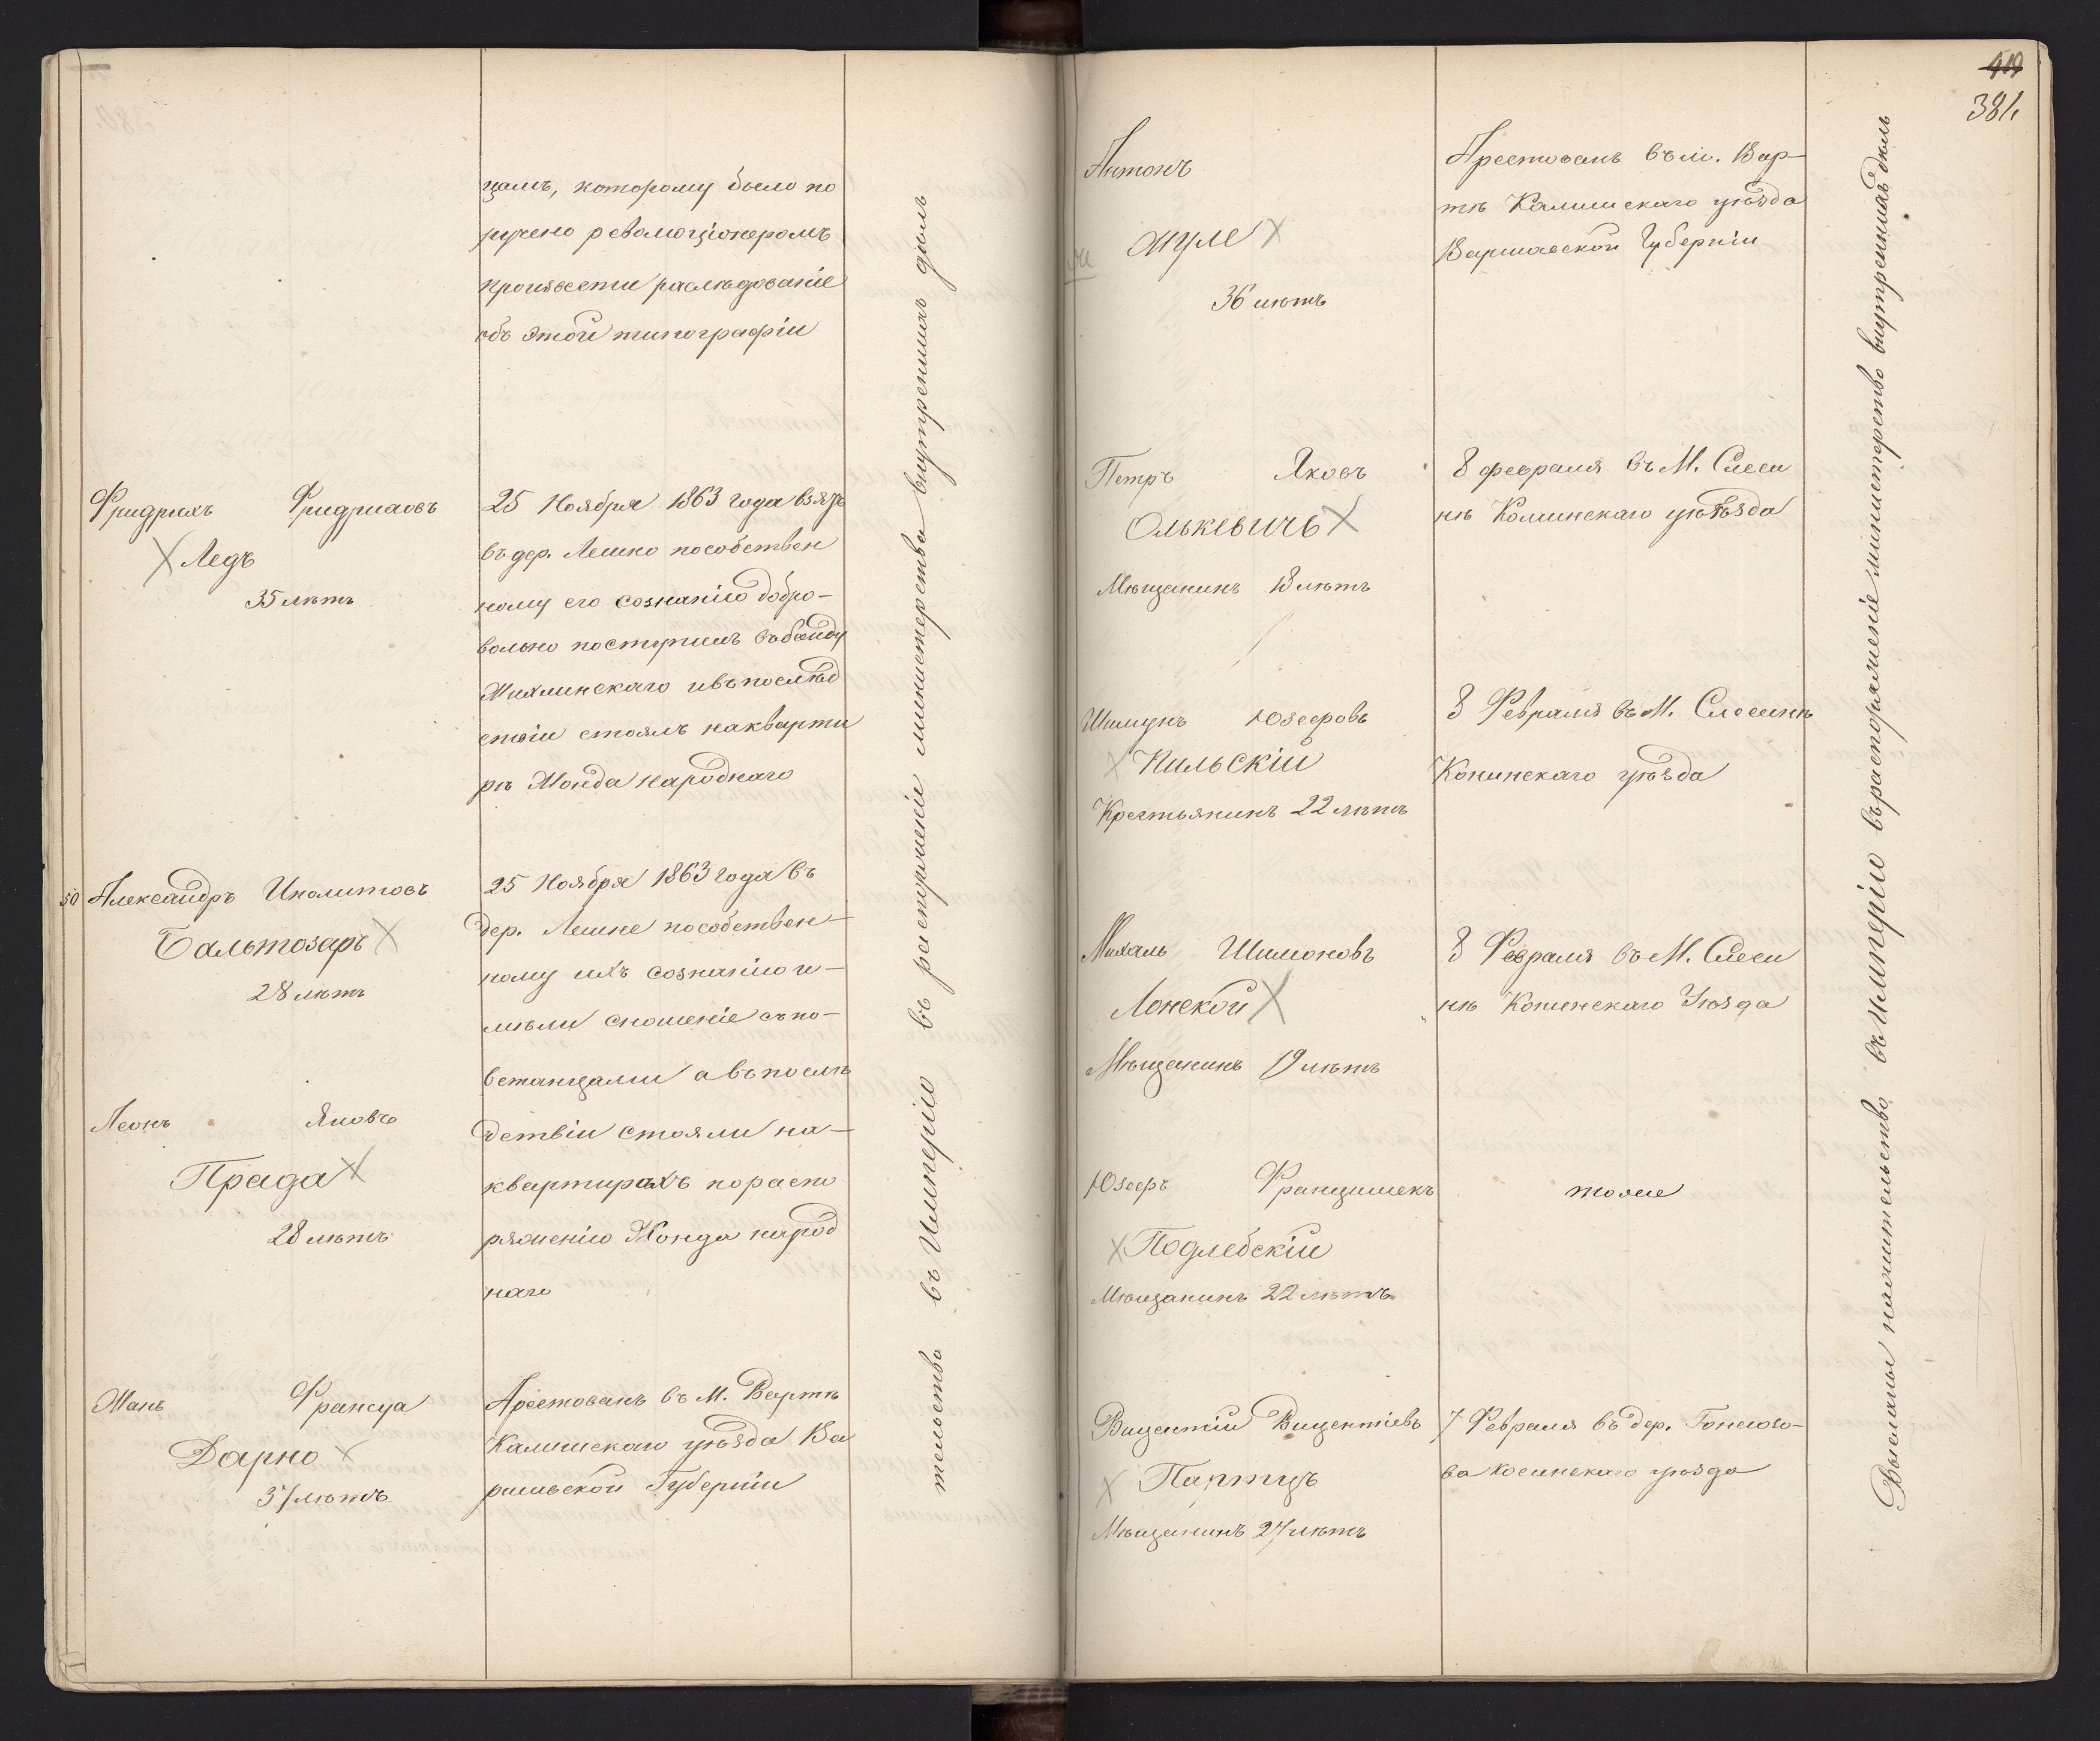 цамъ, которому было по
ручено революціонеромъ
произвести разслѣдованіе
объ этой типографіи
Фридрихъ Фридриховъ
Ледъ
35 лѣтъ
25 Ноября 1863 года взятъ
въ дер. Лешно пособствен
ному его сознанію добро-
вольно поступилъ въ банду
Михлинскаго ивъ послѣд
ствіи стоялъ на кварти
рѣ Жонда народнаго
50 Александръ Иполитовъ
Бальтозаръ
28 лѣтъ
25 Ноября 1863 года въ
дер. Лешне пособствен-
ному ихъ сознанію и-
мѣли сношеніе съ по-
встанцами а въ послѣ
дствіи стояли на-
квартирахъ по распо
ряженію Жонда народ
наго
Леонъ Яновъ
Прада
28 лѣтъ
Жанъ Франсуа
Дарно
37 лѣтъ
Арестованъ въ М. Вартѣ
Калишскаго уѣзда Ва
ршавской Губерніи
тельство въ Имперію въ распоряженіе министерства внутреннихъ дѣлъ
419
381
Антонъ
Жуле
36 лѣтъ
Арестованъ въ м. Вар-
тѣ Калишскаго уѣзда
Варшавской Губерніи
Петръ Яковъ
Олькевичъ
Мѣщанинъ 18 лѣтъ
8 февраля въ М. Слеси
нѣ Конинскаго уѣзда
Шимунъ Юзефовъ
Кильскій
Крестьянинъ 22 лѣтъ
8 Февраля въ М. Слесинѣ
Конинскаго уѣзда
Михаль Шимоновъ
Лонской
Мѣщанинъ 19 лѣтъ
8 Февраля въ М. Слеси
нѣ Конинскаго Уѣзда
Юзефъ Францишекъ
Подлебскій
Мѣщанинъ 22 лѣтъ
тоже
Вицентій Вицентіевъ
Партицъ
Мѣщанинъ 27 лѣтъ
7 Февраля въ дер.
ва уѣзда
Высланы на жительство въ Имперію въ распоряженіе министерство внутреннихъ дѣлъ